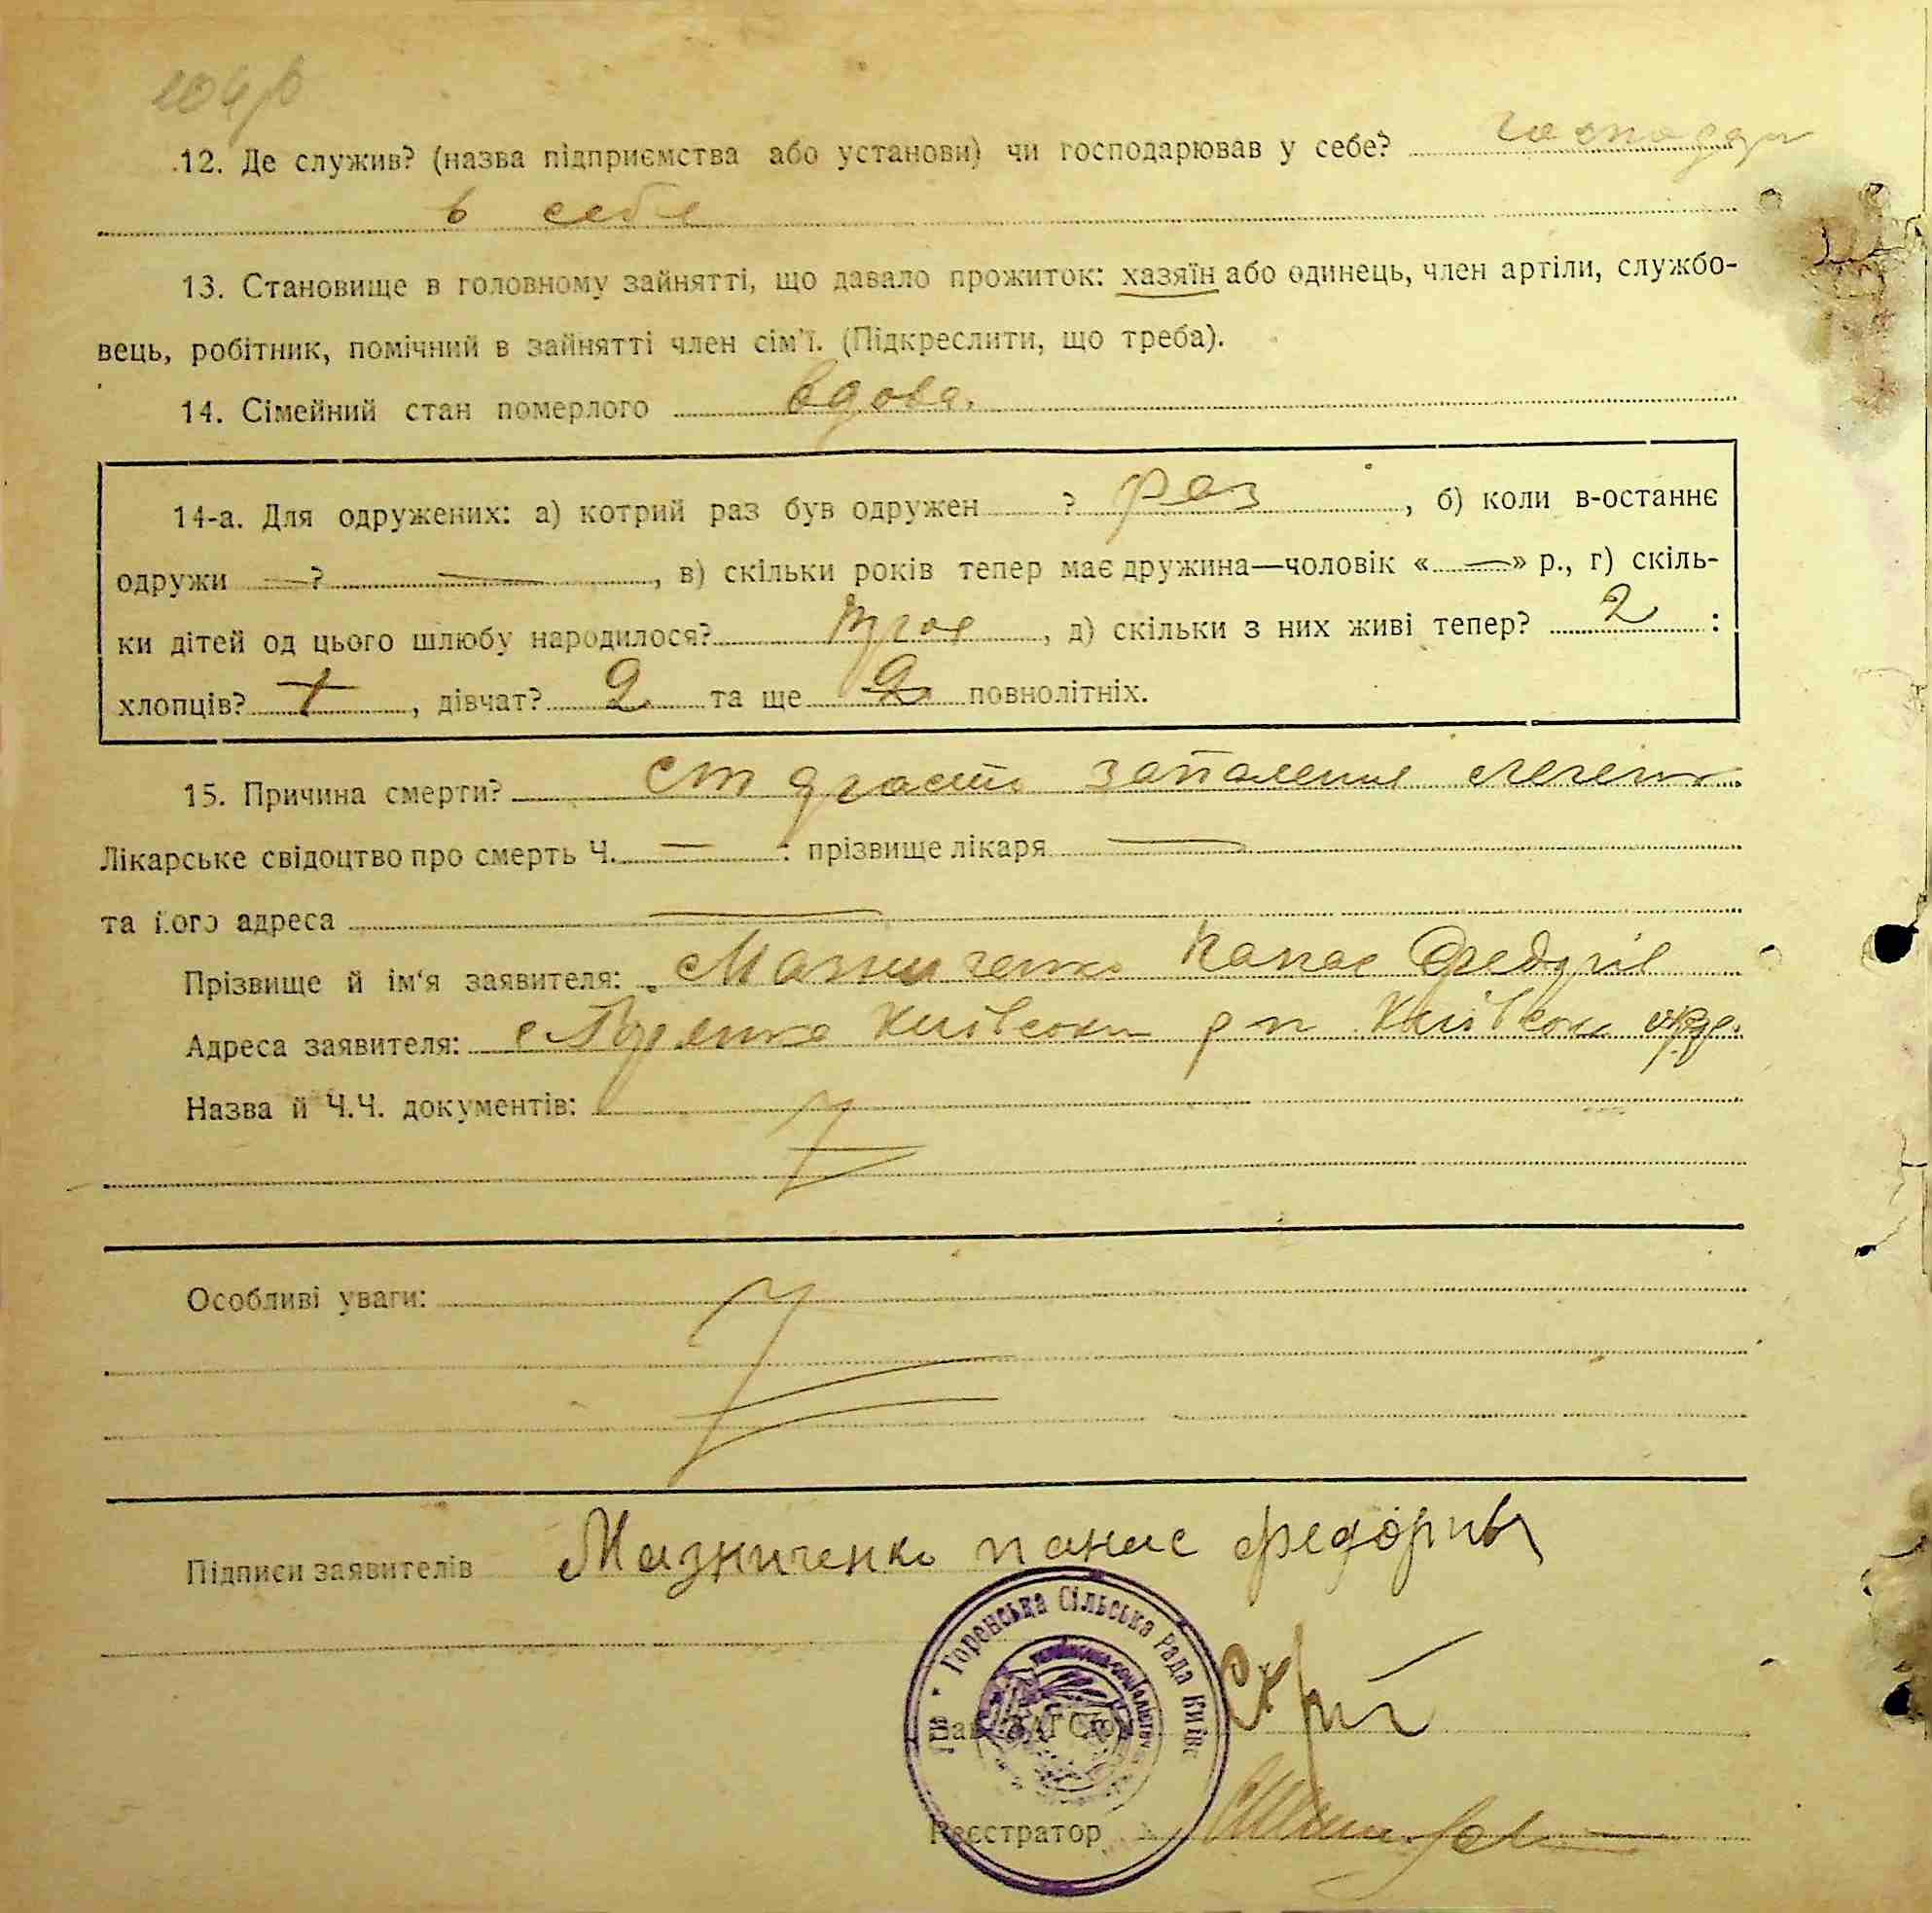 .12. Де служив? (назва підприємства або установи) чи господарював у себе? господар
в себе
13. Становище в головному зайнятті, що давало прожиток: хазяїн або одинець, член артіли, службо-
вець, робітник, помічний в зайнятті член сім'ї. (Підкреслити, що треба).
14. Сімейний стан померлого вдова.
14-а. Для одружених: а) котрий раз був одружен ? раз, б) коли в-останнє
одружи —? —, в) скільки років тепер має дружина—чоловік «—» р., г) скіль-
ки дітей од цього шлюбу народилося? троє, д) скільки з них живі тепер? 2 :
хлопців? , дівчат? 2 та ще 2 повнолітніх.
15. Причина смерти? запалення легень
Лікарське свідоцтво про смерть Ч. — : прізвище лікаря —
та його адреса —
Прізвище й ім'я заявителя: Мазниченко Панас Федорів
Адреса заявителя: с Горенка Київськи р н Київськи окр.
Назва й Ч.Ч. документів:
Особливі уваги:
Підписи заявителів Мазниченко панас федорив
Горенська Сільська Рада Київс
Зав. ЗАГС'ом
Реєстратор